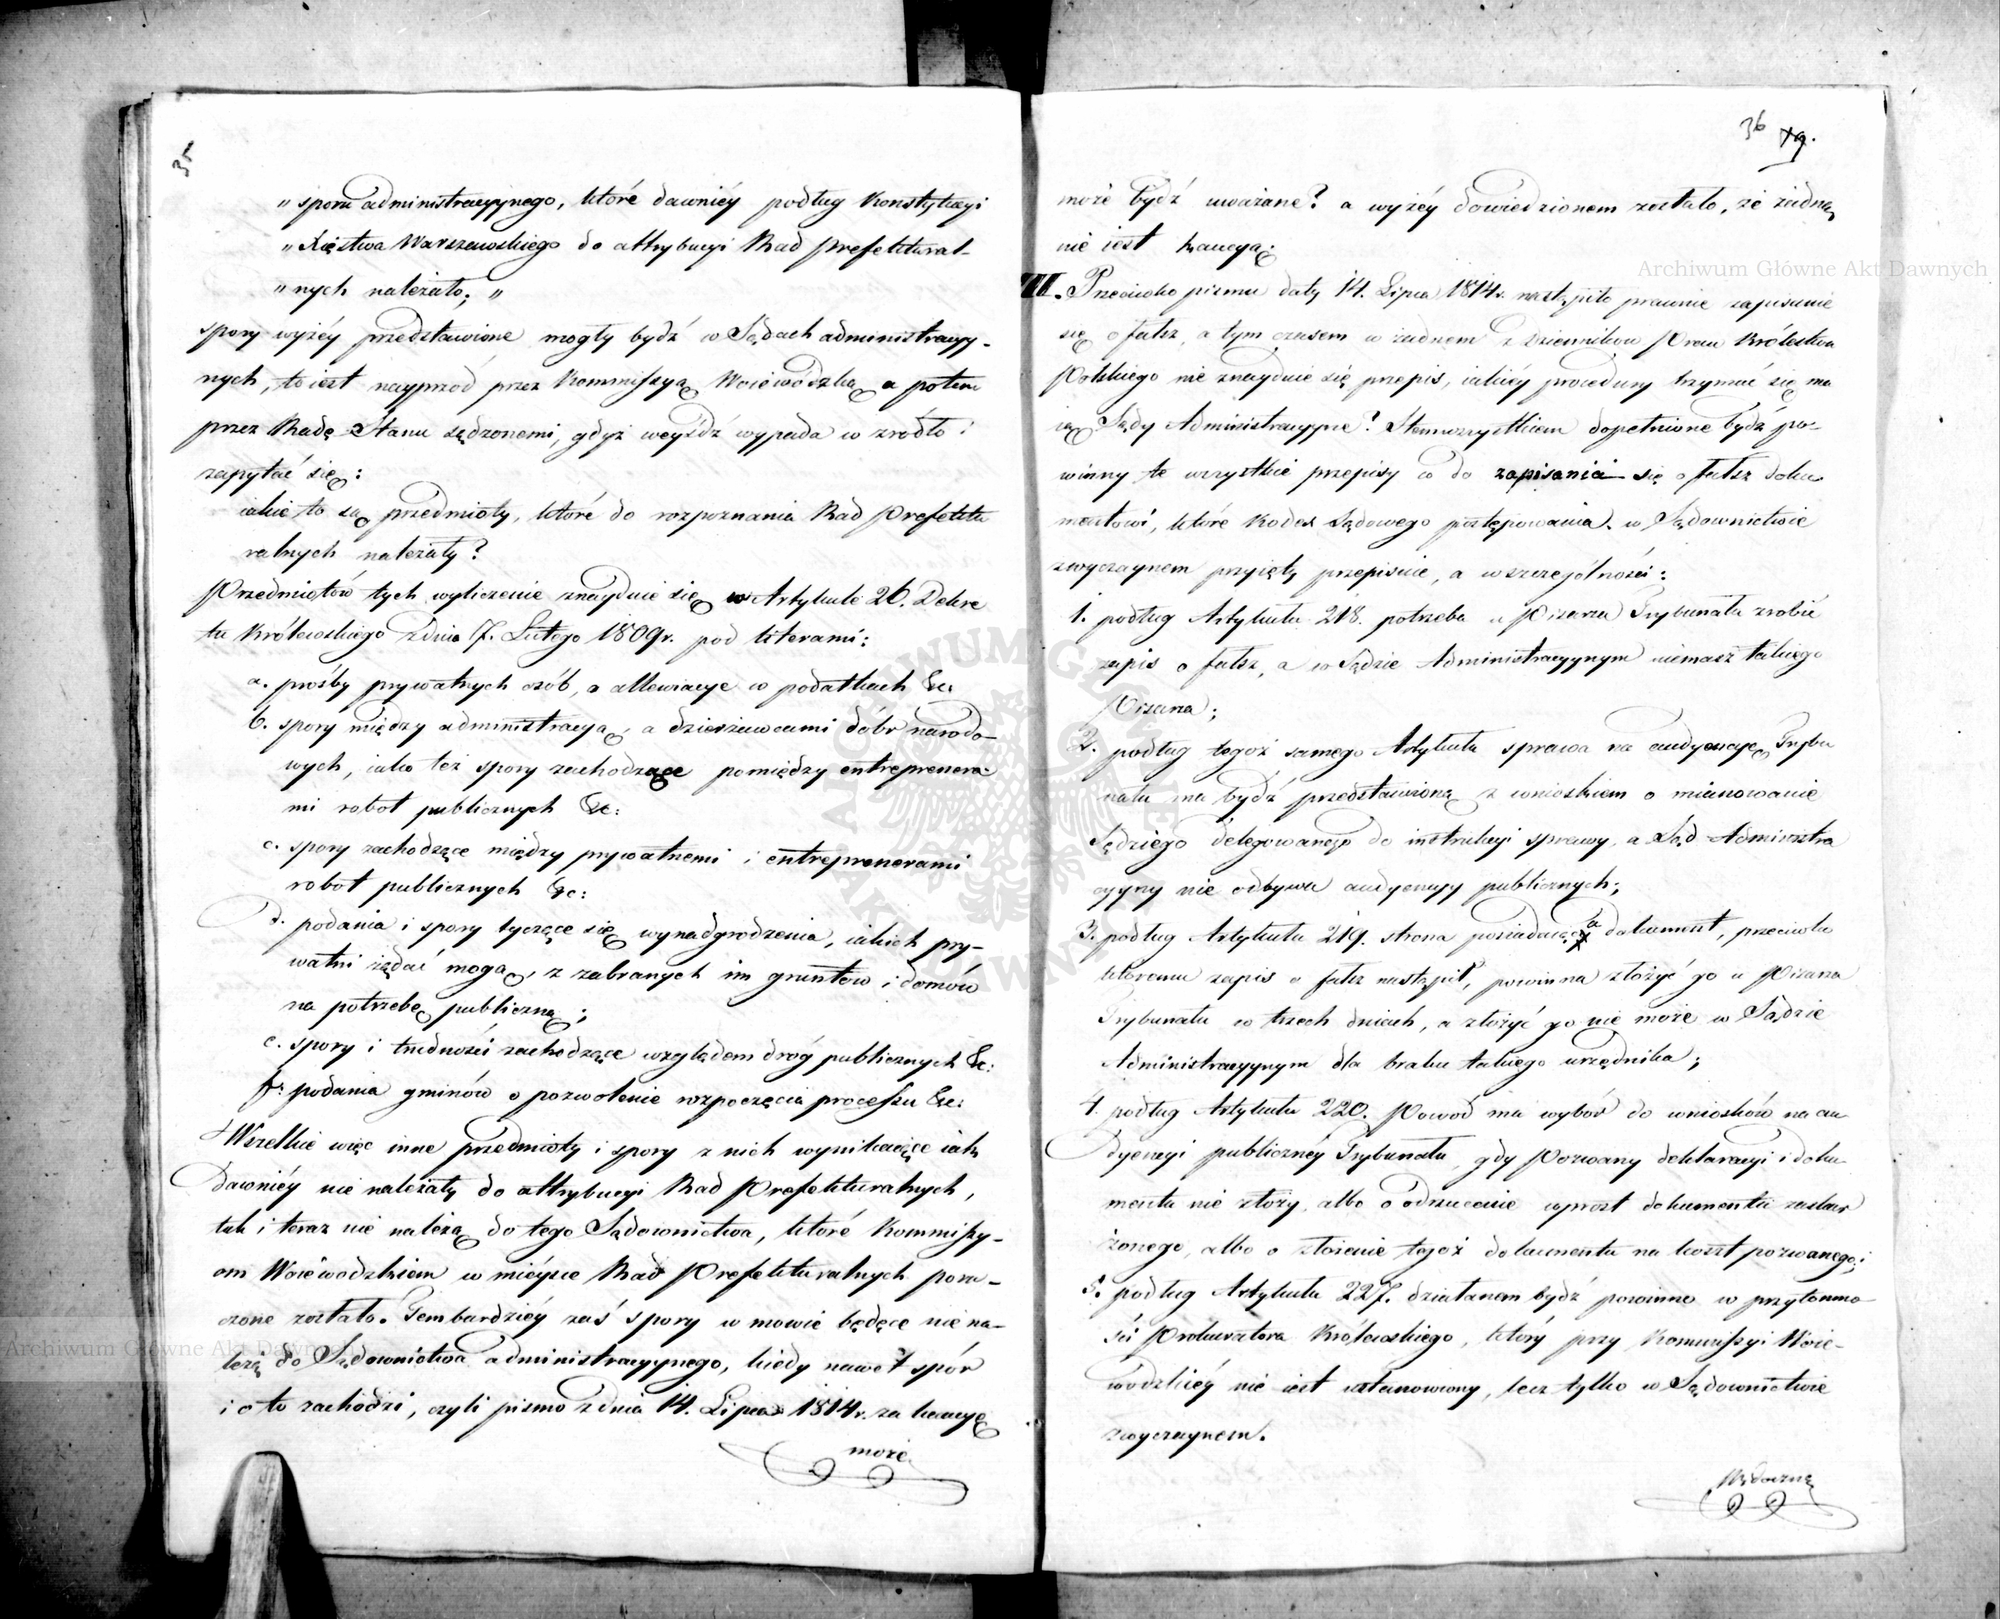 35
„sporu administracyjnego, które dawniéy podług Konstytucyi
„Xięstwa Warszawskiego do attrybucyi Rad prefektural-
„nych należało; „
spory wyżéy przedstawione mogły bydź w Sądach administracyy-
nych, to iest nayprzód przez Kommissyą Woiewódzką a potem
przez Radę Stanu sądzonemi, gdyż weyśdź wypada w zródło i
zapytać się:
iakie to są przedmioty, które do rozpoznania Rad Prefektu
ralnych należały?
Przedmiotów tych wyliczenie znayduie się w Artykule 26. Dekre
tu Królewskiego z dnia 7. Lutego 1809r. pod literami:
a. prośby prywatnych osób, o allewiacye w podatkach &c.
b. spory między administracyą, a dzierżawcami dóbr narodo-
wych, iako też spory zachodzące pomiędzy entreprenera-
mi robot publicznych &c:
c. spory zachodzące między prywatnemi i entreprenerami
robot publicznych &c:
d. podania i spory tyczące się wynadgrodzenia, iakich pry-
watni żądać mogą, z zabranych im gruntów i domów
na potrzebę publiczną;
e. spory i trudności zachodzące względem dróg publicznych &c:
f. podania gminów o pozwolenie rozpoczęcia processu &c:
Wszelkie więc inne przedmioty i spory z nich wynikaiące iak
dawniéy nie należały do attrybucyi Rad Prefekturalnych,
tak i teraz nie należą do tego Sądownictwa, które Kommissy-
om Woiewodzkiem w mieysce Rad Prefekturalnych poru-
czone zostało. Tembardziéy zaś spory w mowie będące nie na-
leżą do Sądownictwa administracyynego, kiedy nawet spór
i o to zachodzi, czyli pismo z dnia 14. Lipca 1814r. za kaucyę
może
36 19.
może bydź uważane? a wyżéy dowiedzionem zostało, że żadną
nie iest kaucyą;
III. Przeciwko pismu daty 14. Lipca 1814r. nastąpiło prawnie zapisanie
się o fałsz, a tym czasem w żadnem z Dzienników Praw Królestwa
Polskiego nie znayduie się przepis, iakiéy procedury trzymać się ma
ią Sądy Administracyyne? Ztemwszystkiem dopełnione bydź po-
winny te wszystkie przepisy co do zapisania się o fałsz doku
mentowi, które Kodex Sądowego postępowania w Sądownictwie
zwyczaynem przyięty przepisuie, a w szczególności:
1. podług Artykułu 218. potrzeba u Pisarza Trybunału zrobić
zapis o fałsz, a w Sądzie Administracyynym niemasz takiego
Pisarza;
2. podług tegoż samego Artykułu sprawa na audyencyę Trybu
nału ma bydź przedstawioną z wnioskiem o mianowanie
Sędziego delegowanego do instrukcyi sprawy, a Sąd Administra
cyyny nie odbywa audyencyy publicznych;
3. podług Artykułu 219. strona posiadaiąca dokument, przeciwko
któremu zapis o fałsz nastąpił, powinna złożyć go u Pisarza
Trybunału w trzech dniach, a złożyć go nie może w Sądzie
Administracyynym dla braku takiego urzędnika;
4. podług Artykułu 220. Powód ma wybór do wniosków na au
dyencyi publicznéy Trybunału, gdy Pozwany deklaracyi i doku
mentu nie złoży, albo o odrzucenie wprost dokumentu zaskar
żonego, albo o złożenie tegoż dokumentu na koszt pozwanego;
5. podług Artykułu 227. działanem bydź powinno w przytomno
ści Prokuratora Królewskiego, który przy Kommissyi Woie-
wodzkiéy nie iest ustanowiony, lecz tylko w Sądownictwie
zwyczaynem.
Archiwum Główne Akt Dawnych
Archiwum Główne Akt Dawnych
ARCHIWUM GŁÓWNE AKT DAWNYCH